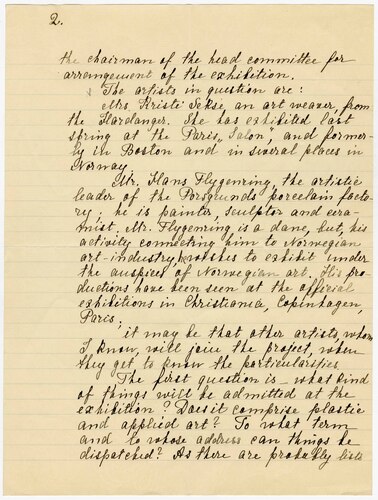 2.
the chairman of the head committee for
arrangement of the exhibition.
The artists in question are:
Mrs. Kristi Sekse an art weaver, from
the Hardanger. She has exhibited last
spring at the Paris "Salon", and former-
ly in Boston and in several places in
Norway.
Mr. Hans Flygenring, the artistic
leader of the Porsgrunds porcelain facto-
ry; he is painter, sculptor and cera-
mist. Mr. Flygenring is a dane, but, his
activity connecting him to Norwegian
art-industry, wishes to exhibit under
the auspices of Norwegian art. His pro-
ductions have been seen at the official
exhibitions in Christiania, Copenhagen,
Paris.
it may be that other artists, whom
I know, will joue the project, when
they get to know the particularities.
The first question is - what kind
of things will be admitted at the
exhibition? Does it comprise plastic
and applied art? To what term
and to whose address can things be
dispatched? As there are probably